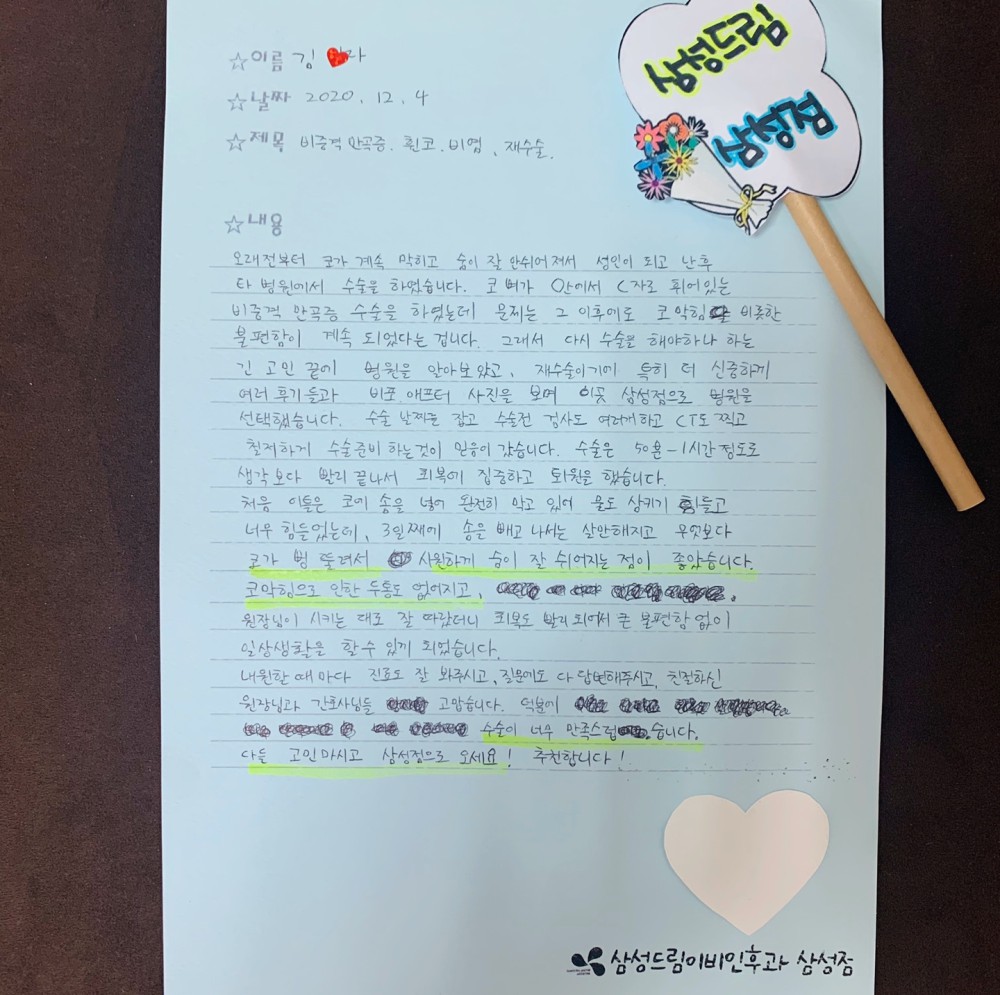 삼성드림
삼성점
☆이름 김 라
☆날짜 2020. 12. 4
☆제목 비중격 만곡증, 휜코, 비염, 재수술.
☆내용
오래전부터 코가 계속 막히고 숨이 잘 안쉬어져서 성인이 되고 난후
타 병원에서 수술을 하였습니다. 코 뼈가 안에서 C자로 휘어있는
비중격 만곡증 수술을 하였는데 문제는 그 이후에도 코막힘 비롯한
불편함이 계속 되었다는 겁니다. 그래서 다시 수술을 해야하나 하는
긴 고민 끝에 병원을 알아보았고, 재수술이기에 특히 더 신중하게
여러 후기들과 비포.애프터 사진을 보며 이곳 삼성점으로 병원을
선택했습니다. 수술 날짜를 잡고 수술전 검사도 여러개하고 CT도 찍고
철저하게 수술준비 하는것이 믿음이 갔습니다. 수술은 50분-1시간 정도로
생각보다 빨리 끝나서 회복에 집중하고 퇴원을 했습니다.
처음 이틀은 코에 솜을 넣어 완전히 막고 있어 물도 삼키기 힘들고
너무 힘들었는데, 3일째에 솜을 빼고 나서는 살만해지고 무엇보다
코가 뻥 뚫려서 시원하게 숨이 잘 쉬어지는 점이 좋았습니다.
코막힘으로 인한 두통도 없어지고,
원장님이 시키는 대로 잘 따랐더니 회복도 빨리 되어서 큰 불편함 없이
일상생활을 할 수 있게 되었습니다.
내원할 때 마다 진료도 잘 봐주시고, 질문에도 다 답변해주시고, 친절하신
원장님과 간호사님들 고맙습니다. 덕분에
수술이 너무 만족스럽습니다.
다들 고민마시고 삼성점으로 오세요! 추천합니다!
삼성드림이비인후과 삼성점